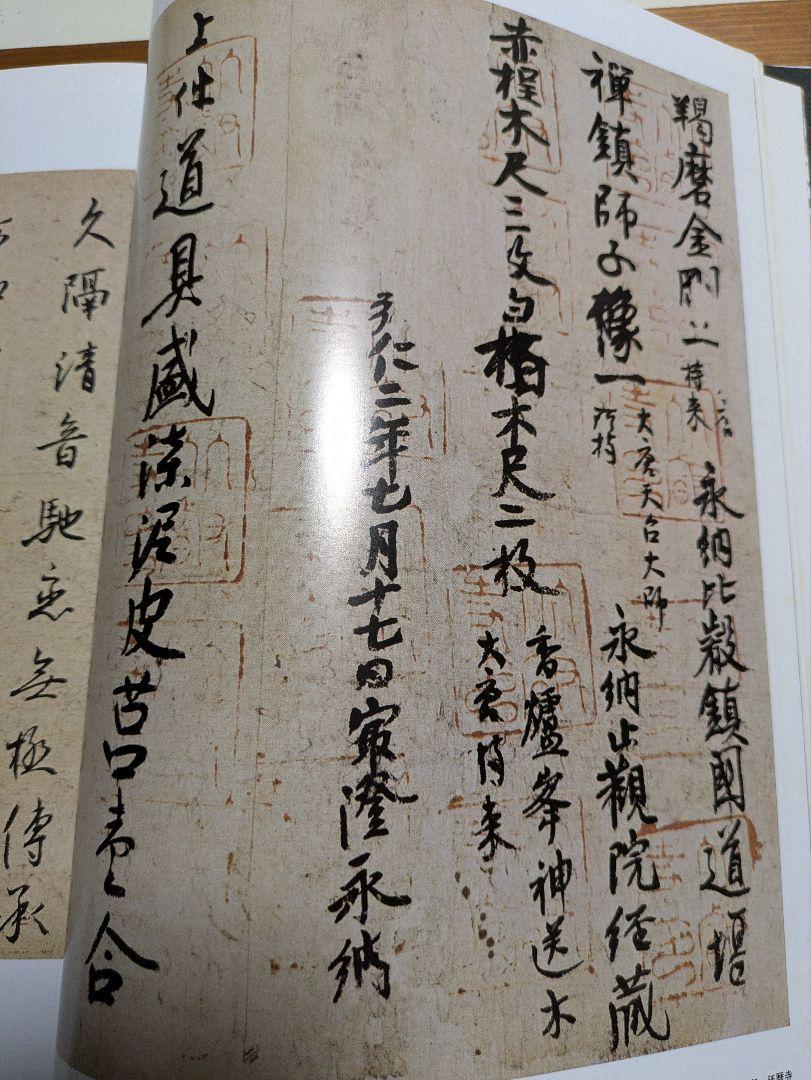 羯磨金剛二 大唐将来 永納比叡鎮國道場
禅鎮師子像一 大唐天台大師所持 永納止觀院経蔵
赤桯木尺三文 白木尺二枚 香爐峯神送木 大唐将来
弘仁二年七月十七日 最澄永納
上件道具盛漆泥皮苔口壹合
久隔清音馳恋無極傳承